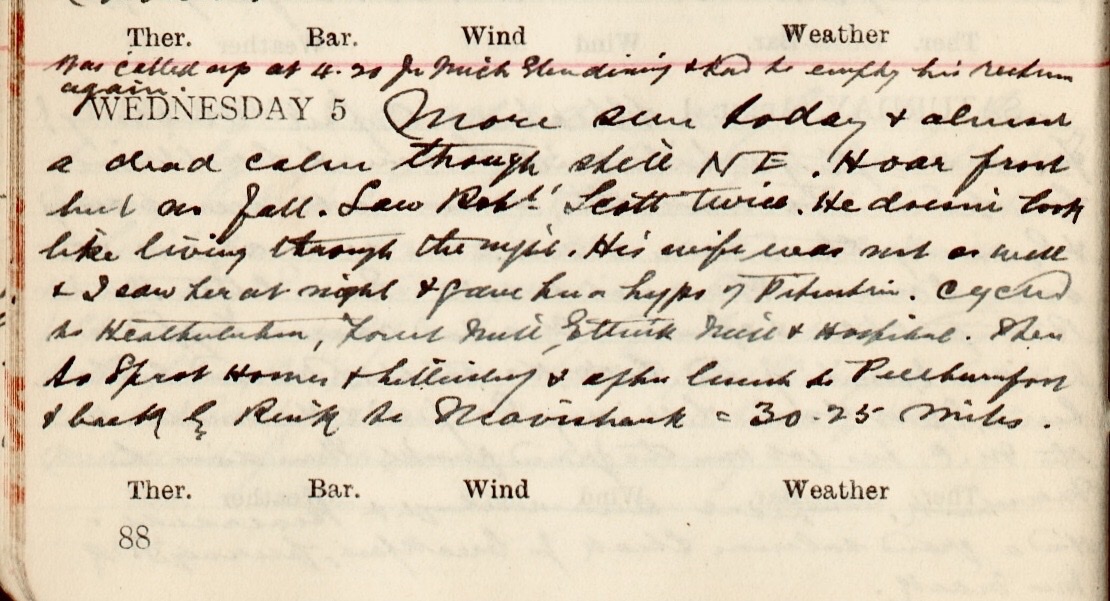 Ther. Bar. Wind Weather
Was called up at 4.20 for Mich Glendining & had to empty his rectum
again.
WEDNESDAY 5 More sun today & almost
a dead calm though still NE. Hoar frost
but no fall. Saw Robt. Scott twice. He doesn't look
like living through the night. His wife was not as well
& I saw her at night & gave her a hypo of Pituitrin. Cycled
to Mill Ettrick Mill & Hospital. Then
to Sprot Homes & & after lunch to Peelburnfoot
& back by Rink to Mavisbank = 30.25 miles.
Ther. Bar. Wind Weather
88